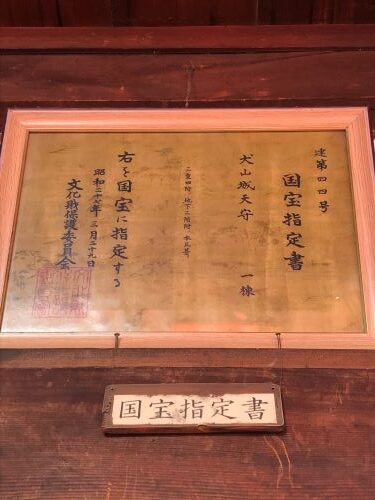 建第四四号
国宝指定書
犬山城天守 一棟
右を国宝に指定する
昭和二十七年三月二十九日
文化財保護委員会
国宝指定書